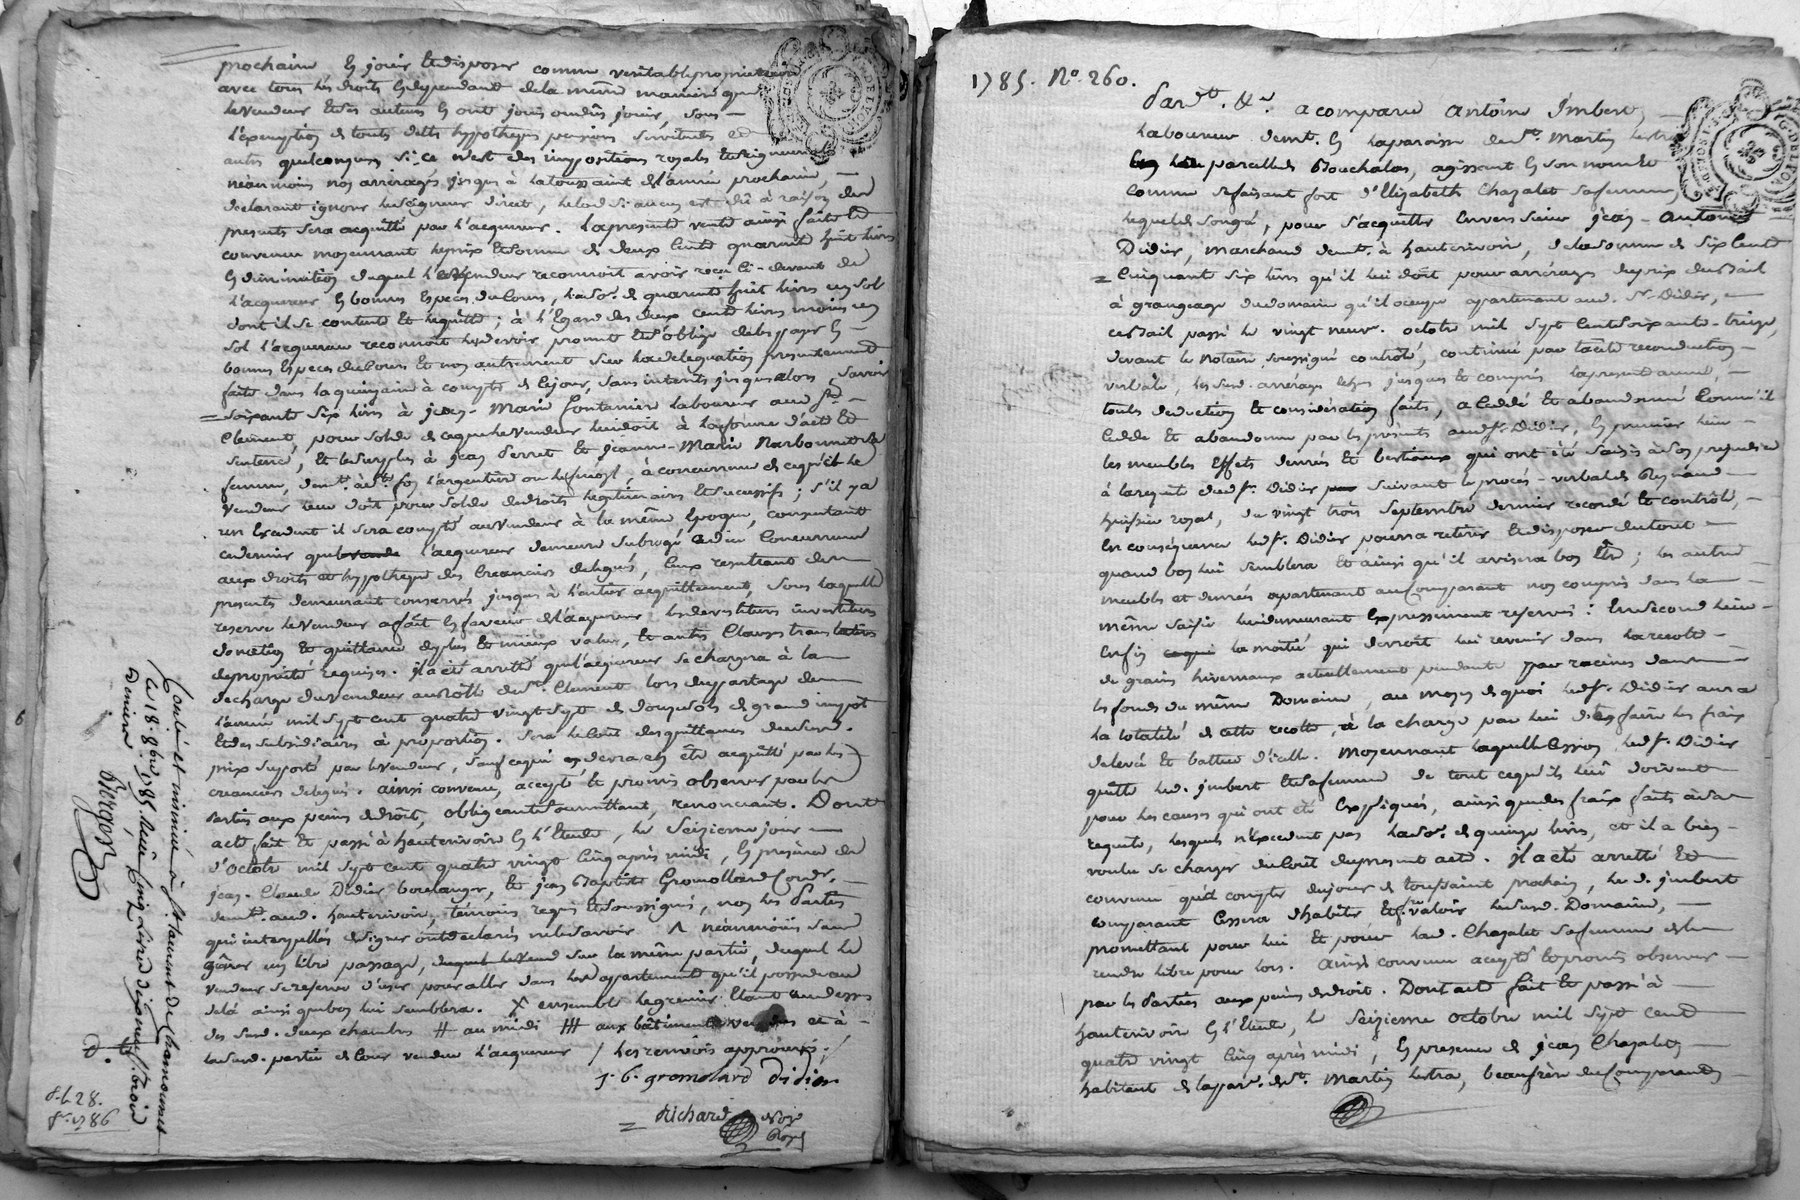 prochaine en jouir et disposer comme veritable proprietaire
avec tous les droits en dependant de la même maniere que
le vendeur et ses auteurs en ont joui ou dû jouir, sous
l'exemption de toute dette hypotheque pensions servitudes et
autres quelconques si ce n'est des impositions royales et seigneuriales
néanmoins nos arrérages jusques à la toussaint de l'année prochaine,
declarant ignorer le seigneur direct, le lod si aucun est dû à raison des
presentes sera acquitté par l'acquereur. La presente vente ainsi faite et
convenue moyennant le prix et somme de deux cents quarante huit livres
en diminution duquel le vendeur reconnoit avoir reçu ci-devant de
l'acquereur en bonnes especes de cours, la so.e de quarante huit livres un sol
dont il se contente et le quitte; à l'égard des deux cents livres moins un
sol l'acquereur reconnoit les devoir, promet et s'oblige de les payer en
bonnes especes de cours et non autrement sur la delegation presentement
faite dans la quinzaine à compter de ce jour, sans interets jusques alors savoir
soixante six livres à jean-Marie fontanier laboureur aud. St.
Clement, pour solde de ce que le vendeur lui doit à la forme d'acte et
sentence, et le surplus à jean Perret et jeanne-Marie Narbonnet sa
femme, dem.t à St. foy l'argentiere, à concurrence de ce qu'il le
vendeur leur doit pour solde de droits legitimaires et successifs; s'il y a
un excedent il sera compté au vendeur à la même epoque, consentant
ce dernier que l'acquereur demeure subrogé à due concurrence
aux droits et hypotheques des creanciers delegués, ceux resultant des
presentes demeurant conservés jusques à l'entier acquittement, sous laquelle
reserve le vendeur a fait en faveur de l'acquereur les devestitures investitures
donation et quittance de plus et mieux value, et autres clauses translatives
de proprieté requises. il a été arretté que l'acquereur se chargera à la
decharge du vendeur au rolle de St. Clement lors du partage de
l'année mil sept cent quatre vingt sept de douze sols de grand impot
et des subsidiaires à proportion. sera le cout des quittances du susd.
prix suporté par le vendeur, sauf ce qui en devra en être acquitté par les
creanciers delegués. ainsi convenu, accepté et promis observer par les
parties aux peines de droit, obligeant soumettant, renonçant. Dont
acte fait et passé à hauterivoire en l'Etude, le seizieme jour
d'octobre mil sept cent quatre vingt cinq après midi, en présence de
jean-Claude Didier boulanger, et jean Baptiste Gromollard cord.r,
dem.t aud. hauterivoire, témoins requis et soussignés, non les parties
qui interpellées de signer ont declaré ne le savoir. Λ néanmoins sans
gêner un libre passage, sur la même partie, duquel le
vendeur se reserve d'user pour aller dans les appartements qu'il possede au
delà ainsi que bon lui semblera. X ensemble le grenier étant au dessus
des susd. deux chambres # au midi ## aux bâtiments vendus et à
la susd. partie de cour vendue l'acquereur / les renvois approuvés.
j. b. gromolard Didier
Richard
Not.
Roy.
Controllé et insinué à St. Laurent de Chamousset
le 18. 8bre 1785. Reçu cinq livres dix neuf sols trois
deniers
1785. No. 260.
Pard.t &.a a comparu Antoine Imbert,
laboureur dem.t en la paroisse de St. Martin lestra
parcelle de Bouchalas, agissant en son nom et
comme se faisant fort d'Elizabeth Chazalet sa femme,
lequel de son gré, pour s'acquitter envers sieur jean-Antoine
Didier, marchand dem.t à hauterivoire, de la somme de six cents
cinquante six livres qu'il lui doit pour arrérages du prix du bail
à grangeage du domaine qu'il occupe appartenant aud. Sr. Didier,
ce bail passé le vingt neuf octobre mil sept cent soixante-treize,
devant le notaire soussigné controlé, continué par tacite reconduction
verbale, les susd. arrérages echus jusques et compris la presente année,
toute deduction et considération faite, a cedé et abandonné comme il
cede et abandonne par les presentes aud. Sr. Didier, en premier lieu
les meubles effets denrées et bestiaux qui ont été saisis à son prejudice
à la requete dud. Sr. Didier suivant le procès-verbal de Reynaud
huissier royal, du vingt trois septembre dernier recordé et controlé,
en conséquence led. Sr. Didier pourra retirer et disposer du tout
quand bon lui semblera et ainsi qu'il avisera bon être; les autres
meubles et denrées appartenant au comparant non compris dans la
même saisie lui demeurant expressement reservés: En second lieu
enfin la moitié qui devroit lui revenir dans la recolte
de grains hivernaux actuellement pendante par racines dans
les fonds du même Domaine, au moyen de quoi led. Sr. Didier aura
la totalité de cette recolte, à la charge par lui de faire les frais
de levée et batture d'icelle. Moyennant laquelle cession led. Sr. Didier
quitte led. imbert et sa femme de tout ce qu'ils lui doivent
pour les causes qui ont été expliquées, ainsi que des fraix faits à sa
requete, lesquels n'excedent pas la so.e de quinze livres, et il a bien
voulu se charger du cout du present acte. il a été arretté et
convenu qu'à compter du jour de toussaint prochain, le d. imbert
comparant cessera d'habiter et faire valoir le susd. Domaine,
promettant pour lui et pour lad. Chazalet sa femme de le
rendre libre pour lors. Ainsi convenu accepté et promis observer
par les parties aux peines de droit. Dont acte fait et passé à
hauterivoire en l'Etude, le seizieme octobre mil sept cent
quatre vingt cinq après midi, en presence de jean Chazalet
habitant de la par. de St. Martin lestra, beaufrère du comparant